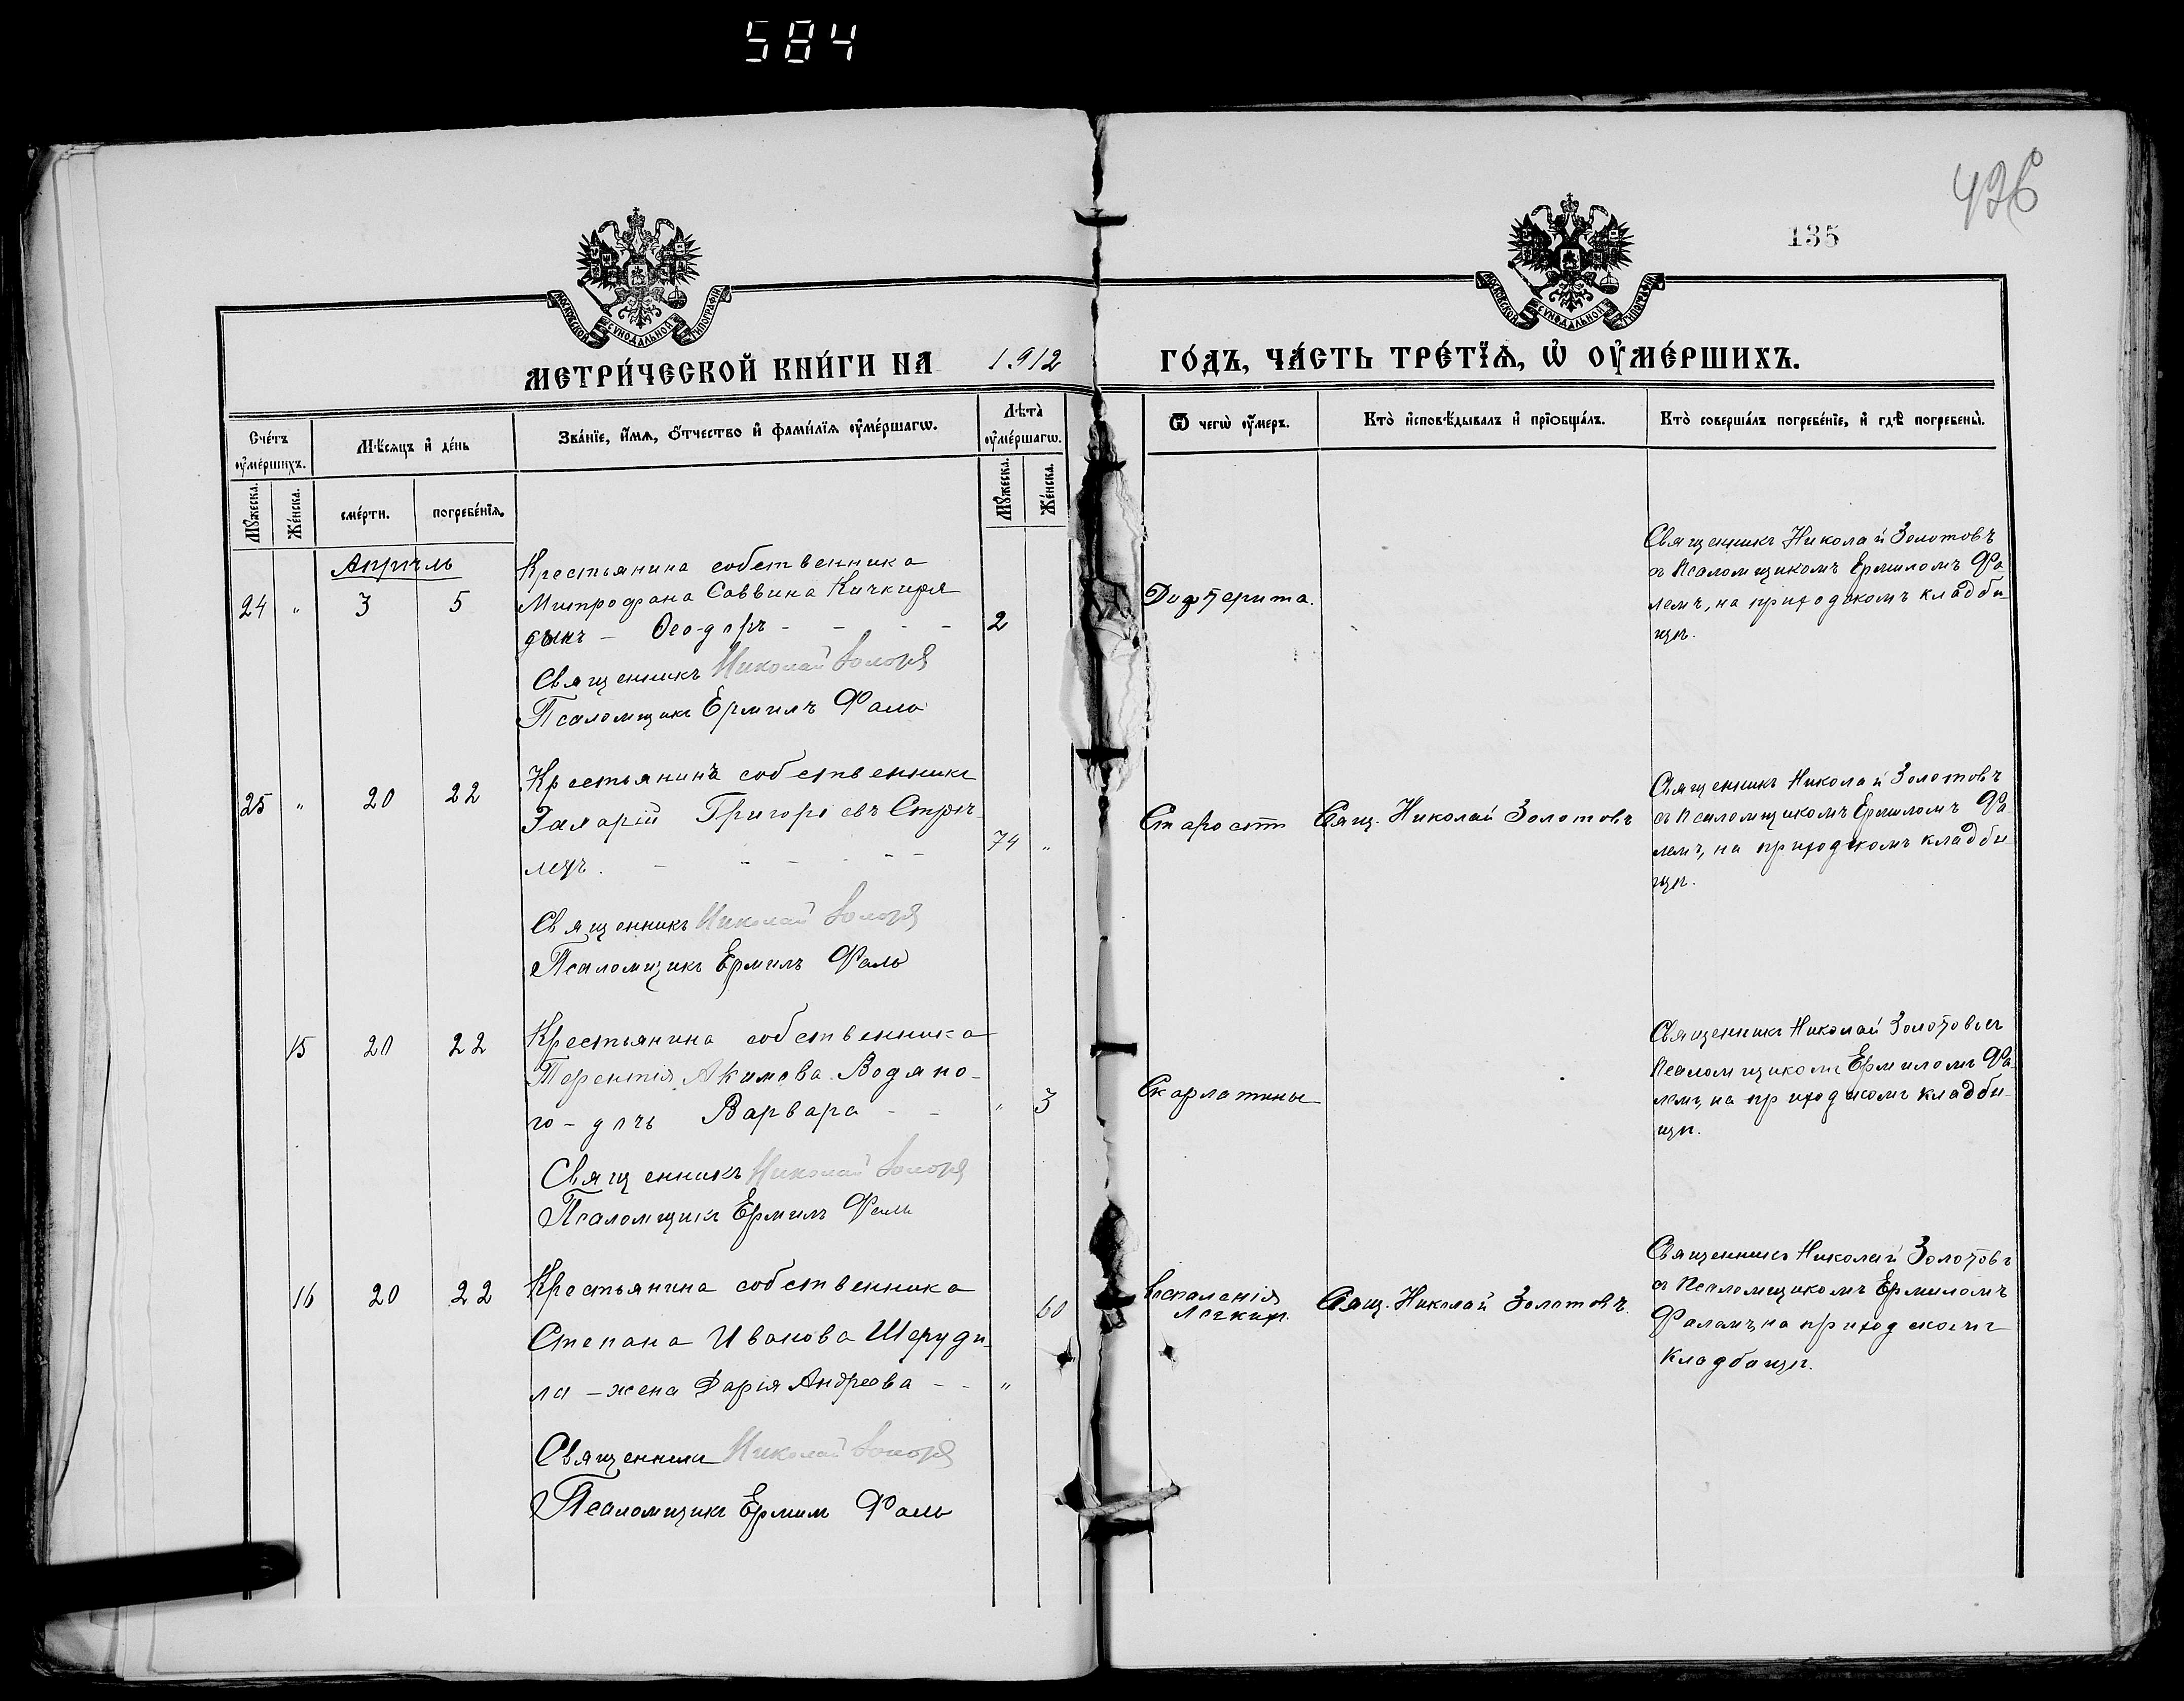 584
426
135
МОСКОВСКОЙ СѴНОДАЛЬНОЙ ТИПОГРАФІИ
МОСКОВСКОЙ СѴНОДАЛЬНОЙ ТИПОГРАФІИ
МЕТРИ́ЧЕСКОЙ КНИ́ГИ НА 1912 ГО́ДЪ, ЧА́СТЬ ТРЕ́ТЇѦ, Ѡ ОУ҆МЕ́РШИХЪ.
Сче́тъ оу҆ме́ршихъ.
Мѣ́сяцъ и҆ де́нь
Зва́нїе, и҆́мѧ, о҆́тчество и҆ фами́лїѧ оу҆ме́ршагѡ.
Лѣ́та оу҆ме́ршагѡ.
Ѿ чегѡ̀ оу҆́меръ.
Кто̀ и҆сповѣ́дывалъ и҆ прїобща́лъ.
Кто̀ соверша́лъ погребе́нїе, и҆ гдѣ̀ погребены̀.
Мꙋ́жеска.
Же́нска.
сме́рти.
погребе́нїѧ.
Мꙋ́жеска.
Же́нска.
Апрѣль
24 " 3 5
Крестьянина собственника
Митрофана Саввина
сынъ - Ѳеодоръ - - - - 2
Священникъ Николай
Псаломщикъ Ермилъ Фаль
Дифтерита.
Священникъ Николай Золотовъ
съ Псаломщикомъ Ермиломъ Фа-
лемъ, на приходскомъ кладби-
щѣ.
25 " 20 22
Крестьянинъ собственникъ
Григорьевъ Стрѣ-
лецъ. - - - - - - 74 "
Священникъ Николай
Псаломщикъ Ермилъ Фаль
Старости
Свящ. Николай Золотовъ
Священникъ Николай Золотовъ
съ Псаломщикомъ Ермиломъ Фа-
лемъ, на приходскомъ кладби
щѣ.
15 20 22
Крестьянина собственника
Терентія Акимова Водяно-
го - дочь Варвара - - " 3
Священникъ Николай
Псаломщикъ Ермилъ Фаль
Скарлатины
Священникъ Николай Золотовъ съ
Псаломщикомъ Ермиломъ Фа-
лемъ, на приходскомъ кладби-
щѣ.
16 20 22
Крестьянина собственника
Степана Иванова Шеруди-
ла - жена Дарія Андреева - - " 60
Священникъ Николай
Псаломщикъ Ермилъ Фаль
Воспаленія
легкихъ.
Свящ. Николай Золотовъ.
Священникъ Николай Золотовъ
съ Псаломщикомъ Ермиломъ
Фалемъ, на приходскомъ
кладбищѣ.